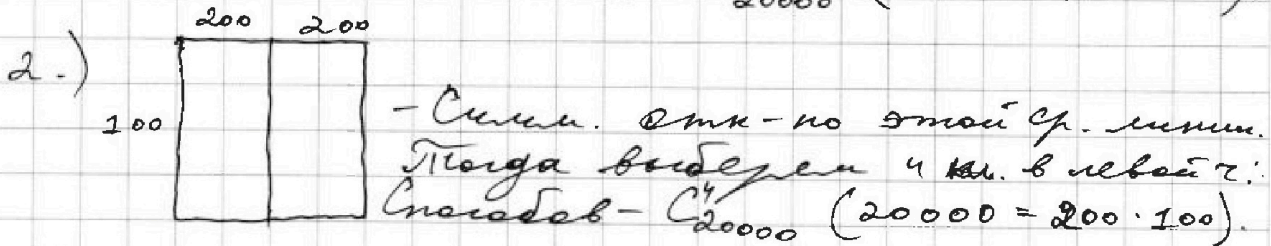 20000 (
200 200
2.)
100
- Симм. отн-но этой ср. линии.
Тогда выберем 4 кл. в левой ч.:
Способов - C⁴₂₀₀₀₀ (20000 = 200 · 100).